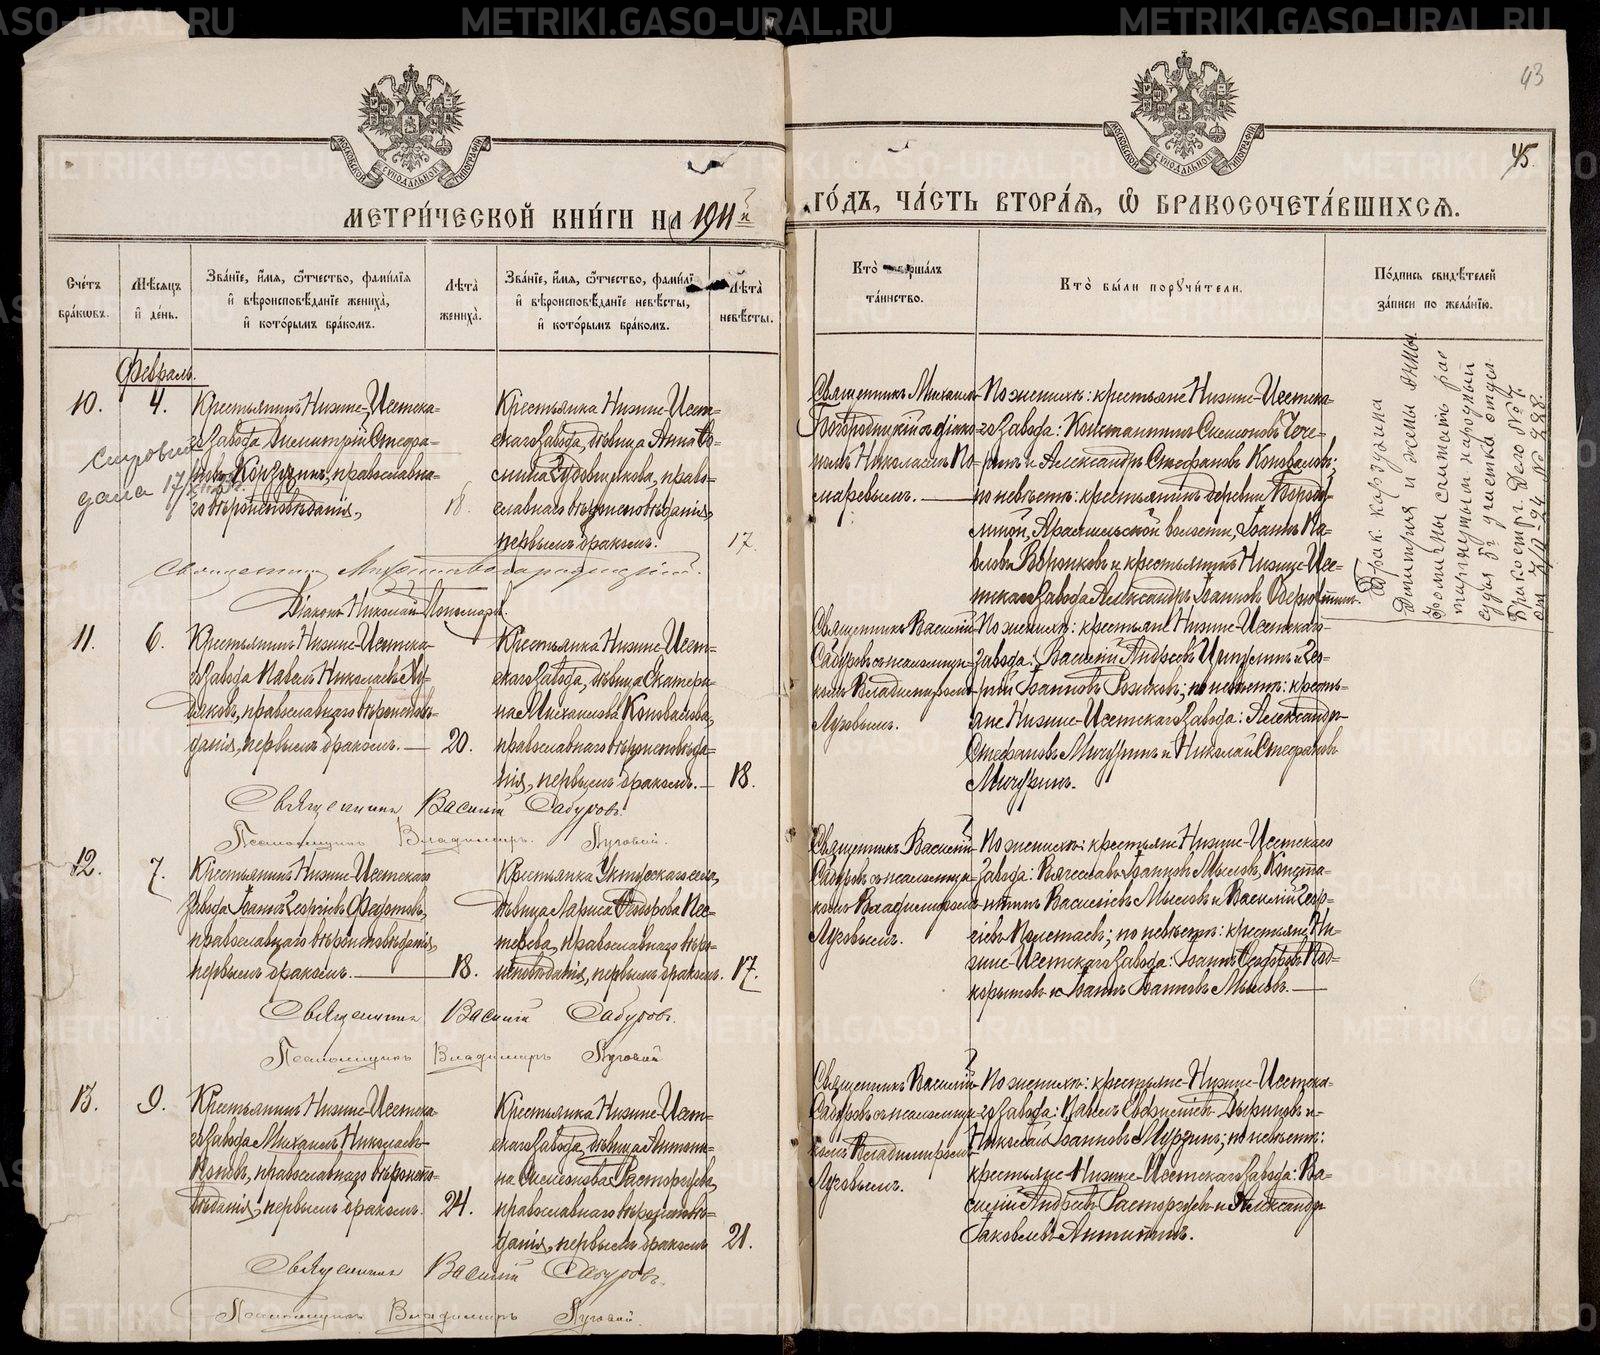 METRIKI.GASO-URAL.RU
43
45.
МЕТРИ́ЧЕСКОЙ КНИ́ГИ НА 1911 й
ГО́ДЪ, ЧА́СТЬ ВТОРА́Я, Ѡ҆ БРАКОСОЧЕТА́ВШИХСЯ.
Сче́тъ бра́кѡвъ.
Мѣ́сяцъ и҆ де́нь.
Зва́нїе, и҆́мя, ѻ҆́тчество, фами́лїя и҆ вѣроисповѣ́данїе жениха̀, и҆ кото́рымъ бра́комъ.
Лѣ̑та жениха̀.
Зва́нїе, и҆́мя, ѻ҆́тчество, фами́лїя и҆ вѣроисповѣ́данїе невѣ́сты, и҆ кото́рымъ бра́комъ.
Лѣ̑та невѣ́сты.
Кто̀ соверша́лъ та́инство.
Кто̀ бы́ли порꙋчи́тели.
По́дпись свидѣ́телей за́писи по жела́нїю.
Февраль.
10.
4.
Крестьянинъ Низше-Исетска-
го завода Димитрій Стефа-
новъ Корзухинъ, православна-
го вѣроисповѣданія,
18.
Крестьянка Низше-Исет-
скаго завода, дѣвица Анна Фо-
мина, право-
славнаго вѣроисповѣданія,
первымъ бракомъ.
17.
Священникъ Михаилъ
Богородицкій съ діако-
номъ Николаемъ По-
маревымъ.
По женихѣ: крестьяне Низше-Исетска-
го завода: Константинъ Симоновъ
и Александръ Стефановъ Коноваловъ;
по невѣстѣ: крестьянинъ деревни
Арамильской волости, Іоаннъ Па-
вловъ и крестьянинъ Низше-Исе-
тскаго завода Александръ Іоанновъ
Справка
дана 17
Священникъ Михаилъ Богородицкій.
Діаконъ Николай Пономаревъ.
Брак Карзухина
Дмитрия и жены Анны
Фомичны считать рас
торгнутым народный
судья 5г участка отдел
Бракоразв. Дело № 7.
от 7/IV-24 № 288
11.
6.
Крестьянинъ Низше-Исетска-
го завода Павелъ Николаевъ Ху-
дяковъ, православнаго вѣроисповѣ-
данія, первымъ бракомъ.
20.
Крестьянка Низше-Исет-
скаго завода, дѣвица Екатери-
на Михаилова Коновалова,
православнаго вѣроисповѣда-
нія, первымъ бракомъ.
18.
Священникъ Василій
Сабуровъ съ псаломщи-
комъ Владимиромъ
Луговымъ.
По женихѣ: крестьяне Низше-Исетскаго
завода: Василій Андреевъ и Геор-
гій Іоанновъ; по невѣстѣ: кресть-
яне Низше-Исетскаго завода: Александръ
Стефановъ Мичуринъ и Николай Стефановъ
Мичуринъ.
Священникъ Василій Сабуровъ.
Псаломщикъ Владимиръ Луговой.
12.
7.
Крестьянинъ Низше-Исетскаго
завода Іоаннъ Георгіевъ Федотовъ,
православнаго вѣроисповѣданія,
первымъ бракомъ.
18.
Крестьянка Уктусскаго села,
дѣвица Лариса Пес-
терева, православнаго вѣро-
исповѣданія, первымъ бракомъ.
17.
Священникъ Василій
Сабуровъ съ псаломщи-
комъ Владимиромъ
Луговымъ.
По женихѣ: крестьяне Низше-Исетскаго
завода: Вячеславъ Іоанновъ Мысовъ, Конста-
нтинъ Василіевъ Мысовъ и Василій Геор-
гіевъ Полетаевъ; по невѣстѣ: крестьяне Ни-
зше-Исетскаго завода: Іоаннъ Под-
корытовъ и Іоаннъ Іоанновъ Мысовъ.
Священникъ Василій Сабуровъ.
Псаломщикъ Владимиръ Луговой
13.
9.
Крестьянинъ Низше-Исетска-
го завода Михаилъ Николаевъ
Поповъ, православнаго вѣроиспо-
вѣданія, первымъ бракомъ.
24.
Крестьянка Низше-Исет-
скаго завода, дѣвица Антони-
на Расторгуева,
православнаго вѣроисповѣ-
данія, первымъ бракомъ
21.
Священникъ Василій
Сабуровъ съ псаломщи-
комъ Владимиромъ
Луговымъ.
По женихѣ: крестьяне Низше-Исетска-
го завода: Павелъ и
Николай Іоанновъ Мурзинъ; по невѣстѣ:
крестьяне Низше-Исетскаго завода: Ва-
силій Андреевъ Расторгуевъ и Александръ
Іаковлевъ Антипинъ.
Священникъ Василій Сабуровъ.
Псаломщикъ Владимиръ Луговой.